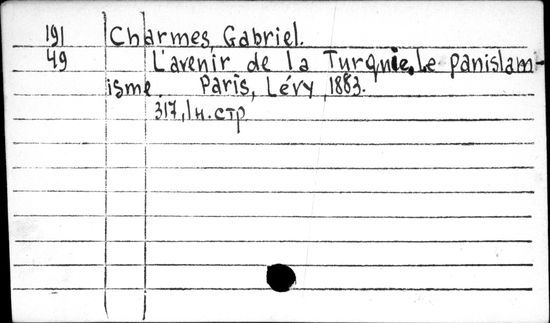 191 Charmes, Gabriel.
49 L'avenir de la Turquie. Le panislam-
isme. Paris, Lévy, 1883.
317, 1 н. стр